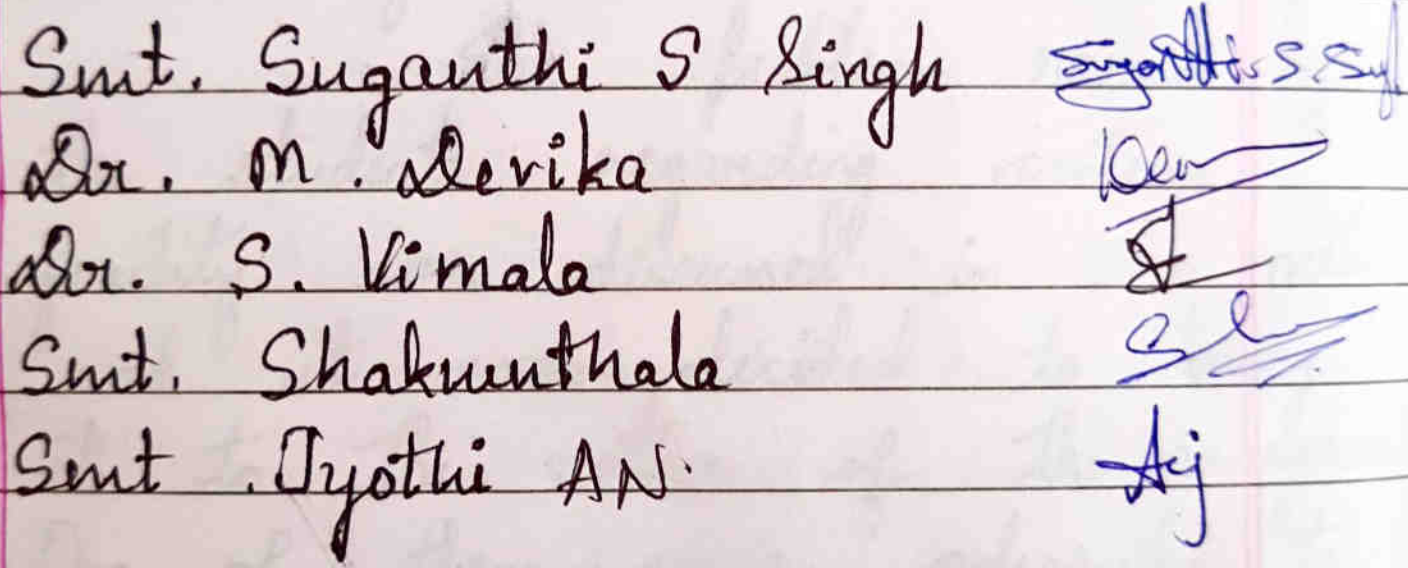 Smt. Suganthi S Singh Suganthi S. Singh
Dr. M. Devika
Dr. S. Vimala
Smt. Shakuunthala
Smt. Jyothi AN.